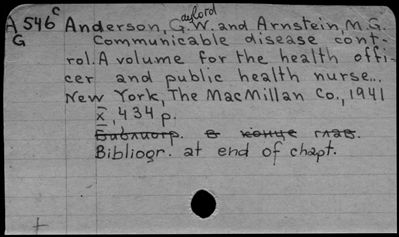 A 546 c Anderson, G.aylord W. and Arnstein, M.G.
G Communicable disease cont-
rol. A volume for the health offi-
cer and public health nurse...
New York, The MacMillan Co., 1941
x, 434 p.
Библиогр. в конце глав.
Bibliogr. at end of chapt.